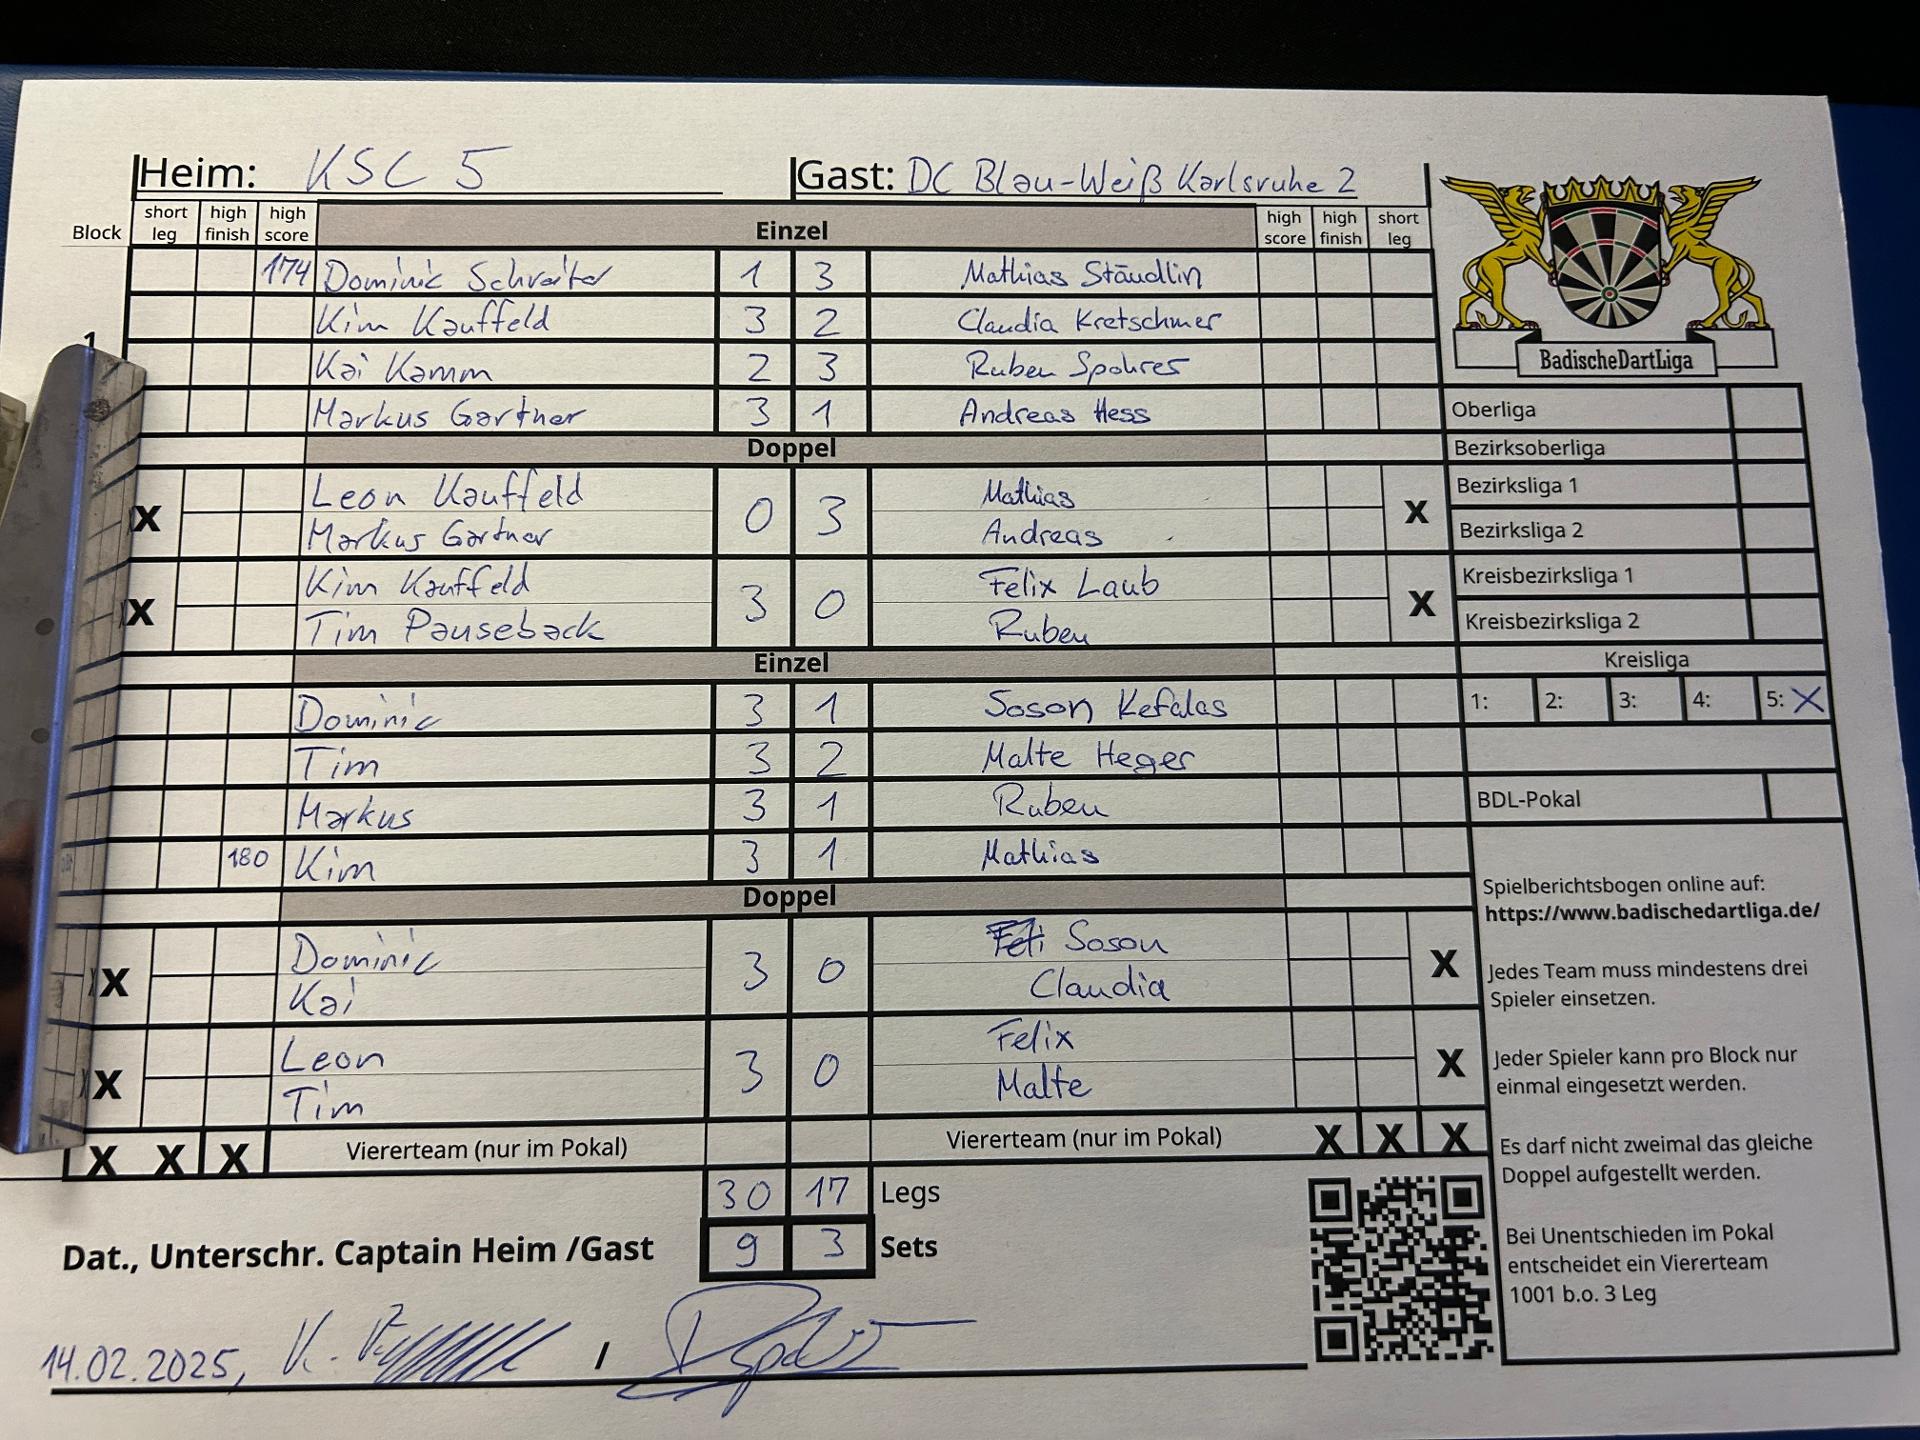 Heim: KSC 5 Gast: DC Blau-Weiß Karlsruhe 2
Block short leg high finish high score Einzel high score high finish short leg
174 Dominic Schreiter 1 3 Mathias Städlin
Kim Kauffeld 3 2 Claudia Kretschmer
1
Kai Kamm 2 3 Ruben Spohrer
Markus Gartner 3 1 Andreas Hess
Doppel
Leon Kauffeld Mathias
X 0 3 X
Markus Gartner Andreas
Kim Kauffeld Felix Laub
X 3 0 X
Tim Pauseback Ruben
Einzel
Dominic 3 1 Soson Kefalas
Tim 3 2 Malte Heger
Markus 3 1 Ruben
180 Kim 3 1 Mathias
Doppel
Dominic Soson
X 3 0 X
Kai Claudia
Leon Felix
X 3 0 X
Tim Malte
X X X Viererteam (nur im Pokal) Viererteam (nur im Pokal) X X X
30 17 Legs
Dat., Unterschr. Captain Heim /Gast 9 3 Sets
14.02.2025, /
BadischeDartLiga
Oberliga
Bezirksoberliga
Bezirksliga 1
Bezirksliga 2
Kreisbezirksliga 1
Kreisbezirksliga 2
Kreisliga
1: 2: 3: 4: 5: X
BDL-Pokal
Spielberichtsbogen online auf:
https://www.badischedartliga.de/
Jedes Team muss mindestens drei
Spieler einsetzen.
Jeder Spieler kann pro Block nur
einmal eingesetzt werden.
Es darf nicht zweimal das gleiche
Doppel aufgestellt werden.
Bei Unentschieden im Pokal
entscheidet ein Viererteam
1001 b.o. 3 Leg